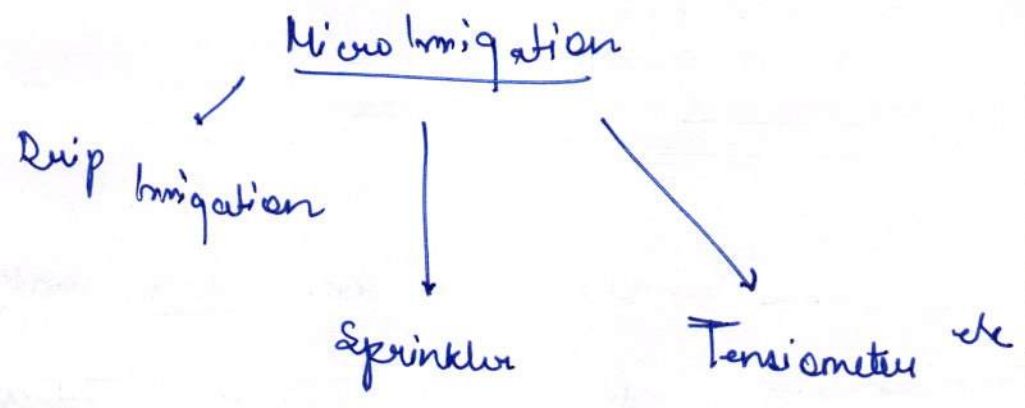 Micro Irrigation
Drip Irrigation
Sprinkler
Tensiometer etc